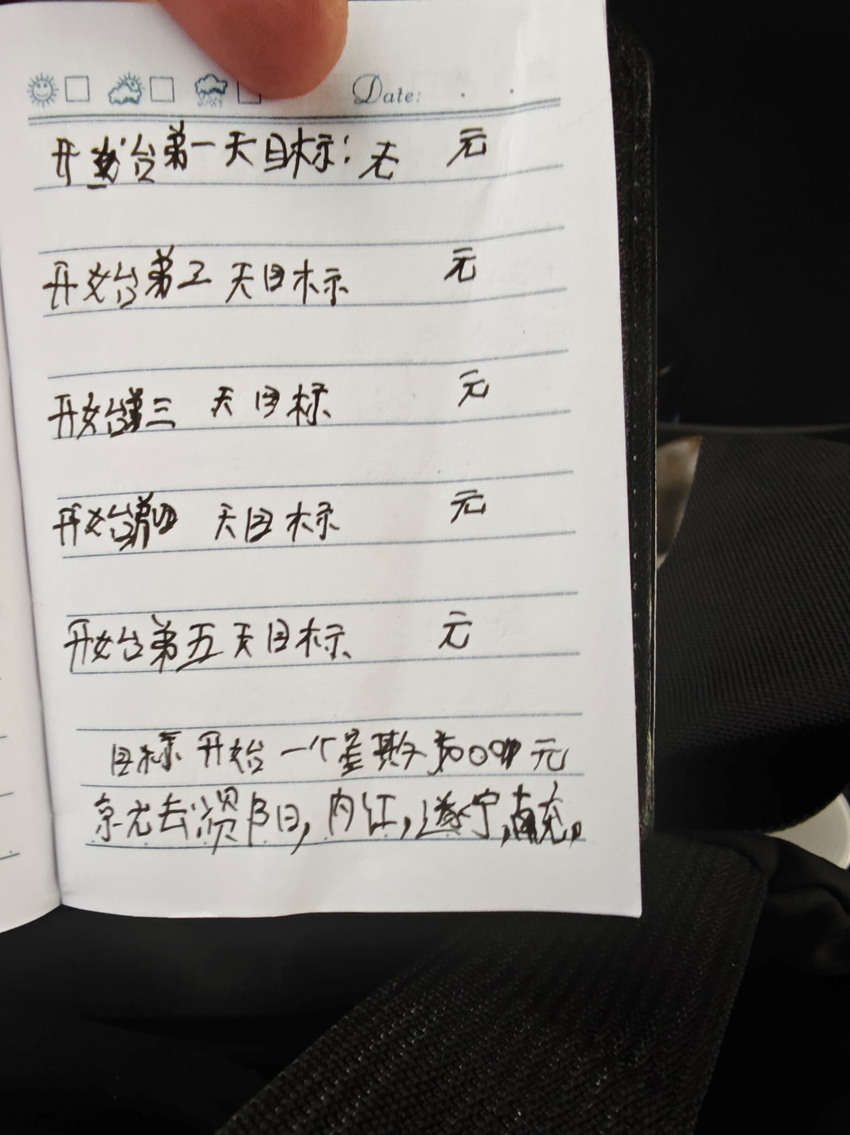 Date:
开始第一天目标: 元
开始第二天目标 元
开始第三天目标 元
开始第四天目标 元
开始第五天目标 元
目标开始一个星期 元
就去资阳,内江,遂宁,南充,